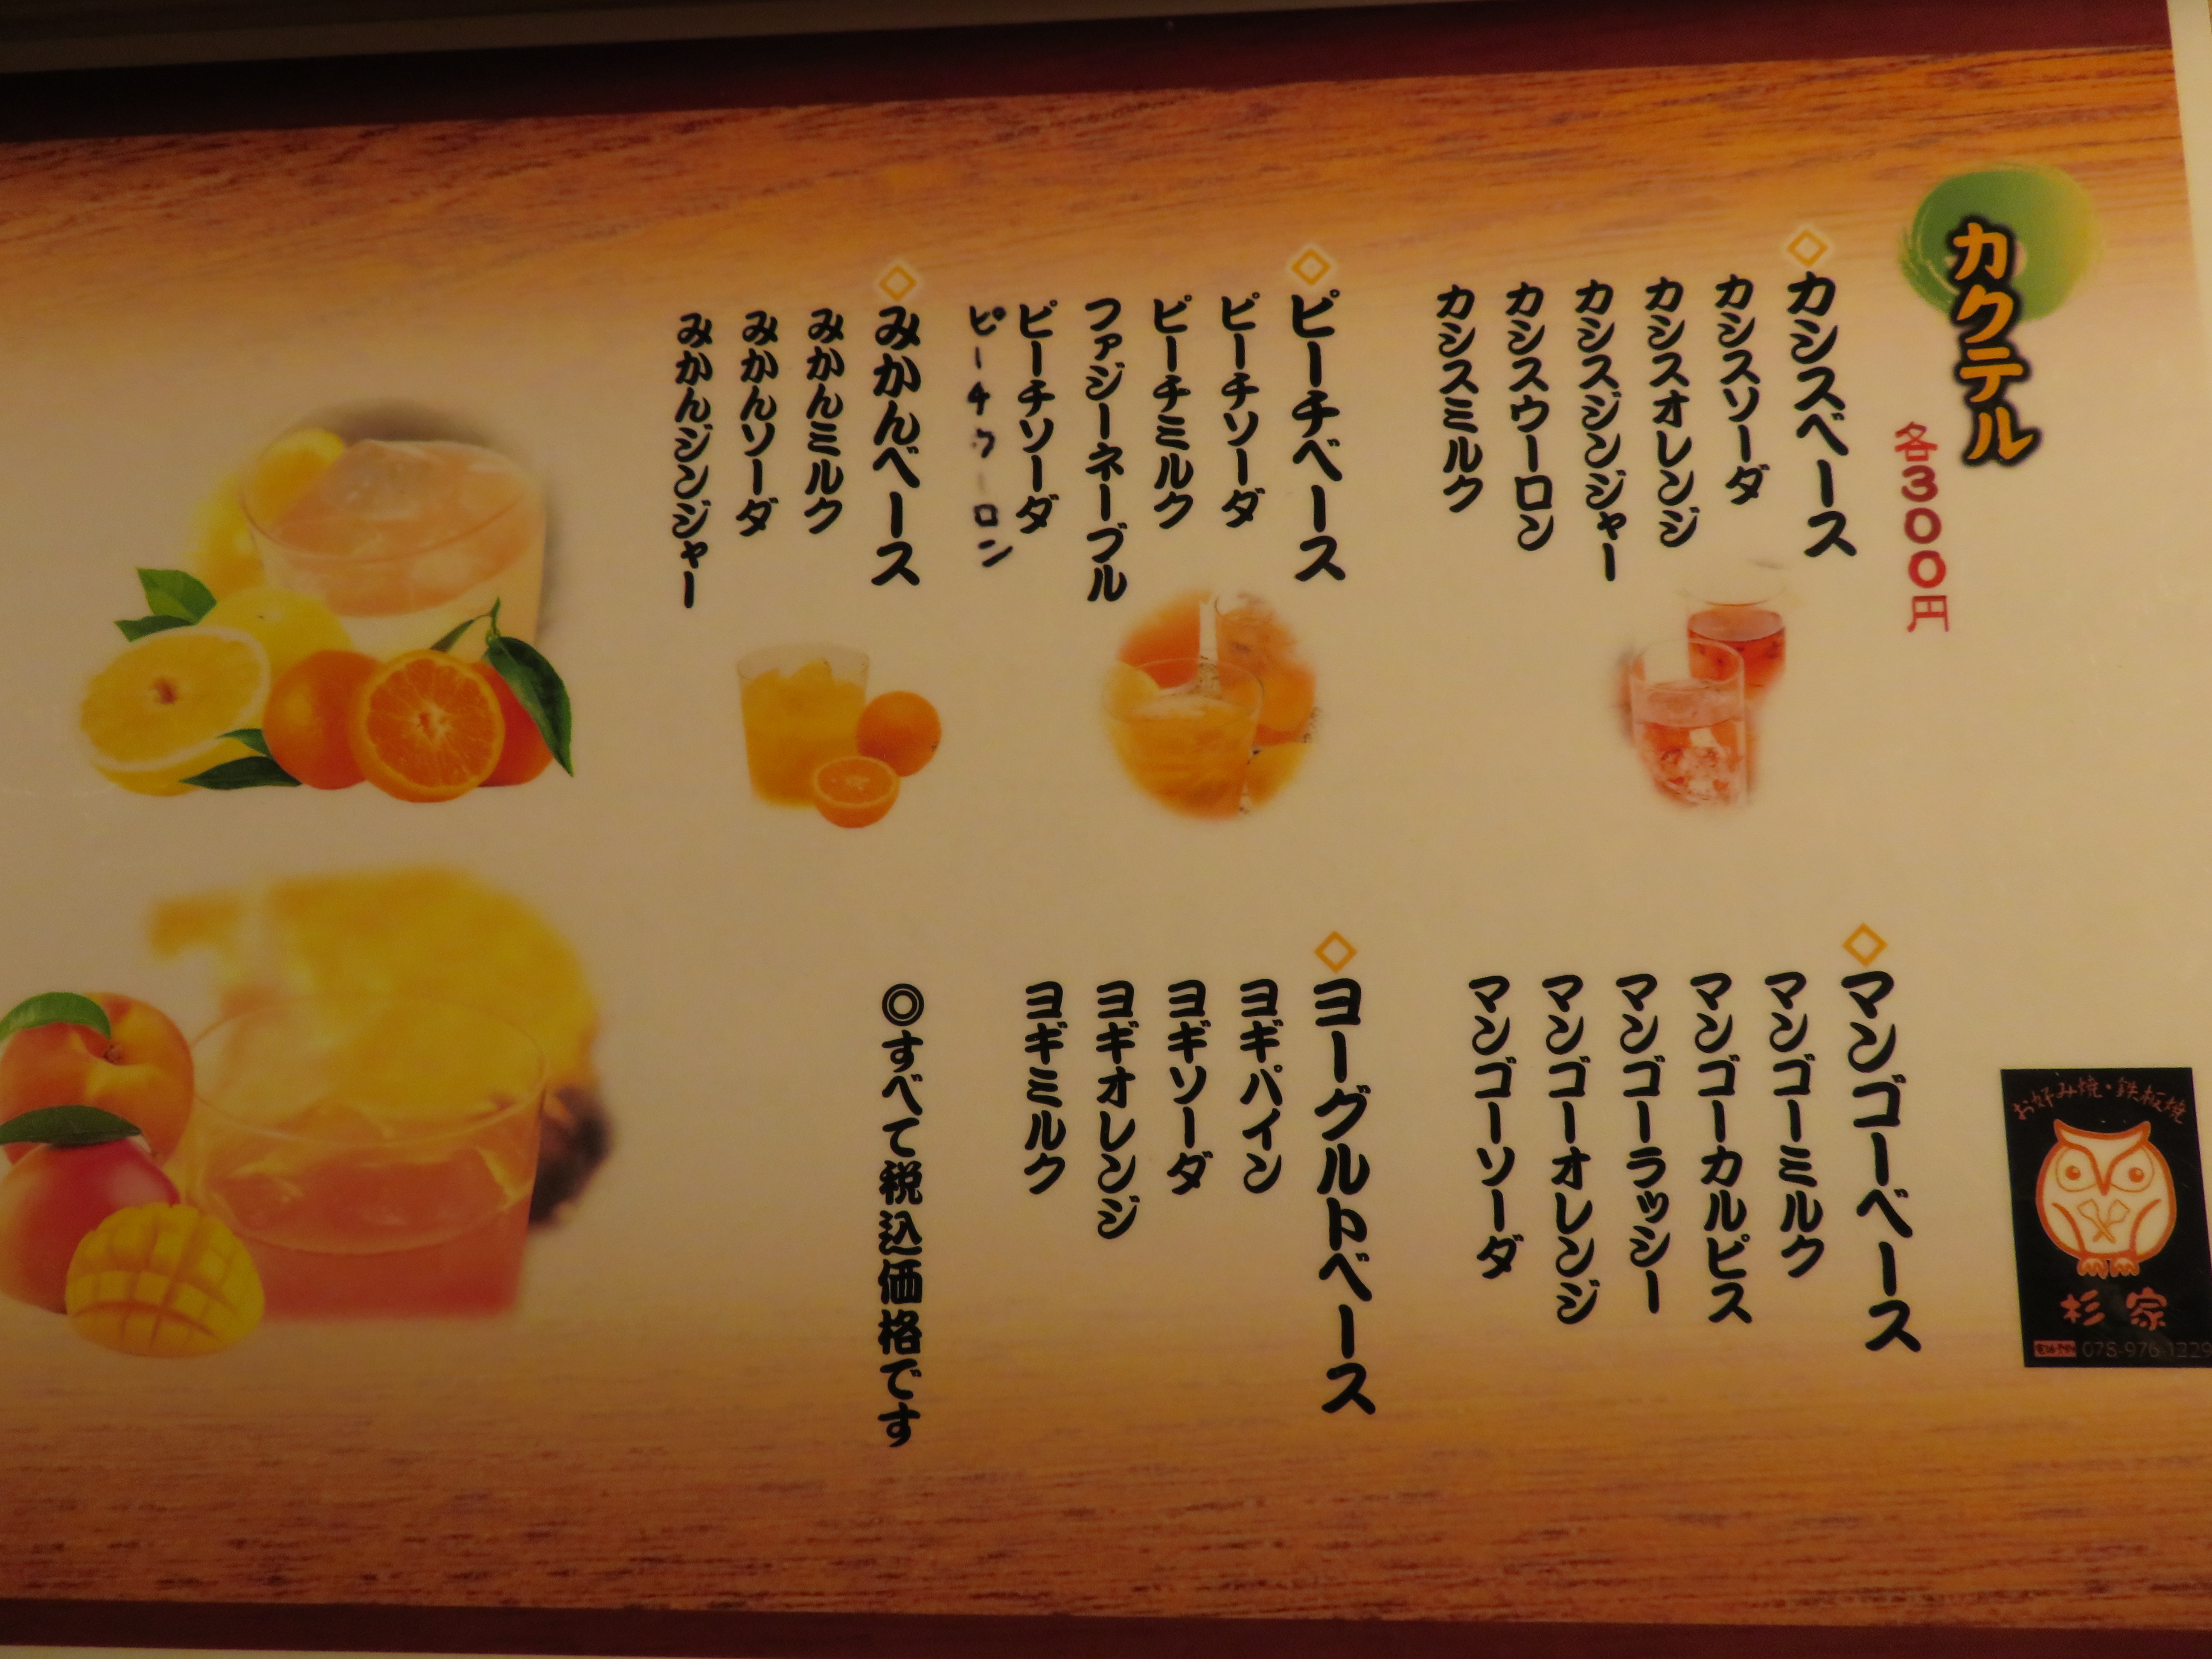 カクテル
各300円
◇カシスベース
カシスソーダ
カシスオレンジ
カシスジンジャー
カシスウーロン
カシスミルク
◇ピーチベース
ピーチソーダ
ピーチミルク
ファジーネーブル
ピーチソーダ
ピーチウーロン
◇みかんベース
みかんミルク
みかんソーダ
みかんジンジャー
◇マンゴーベース
マンゴーミルク
マンゴーカルピス
マンゴーラッシー
マンゴーオレンジ
マンゴーソーダ
◇ヨーグルトベース
ヨギパイン
ヨギソーダ
ヨギオレンジ
ヨギミルク
◎すべて税込価格です
お好み焼・鉄板焼
杉家
078-976-1229